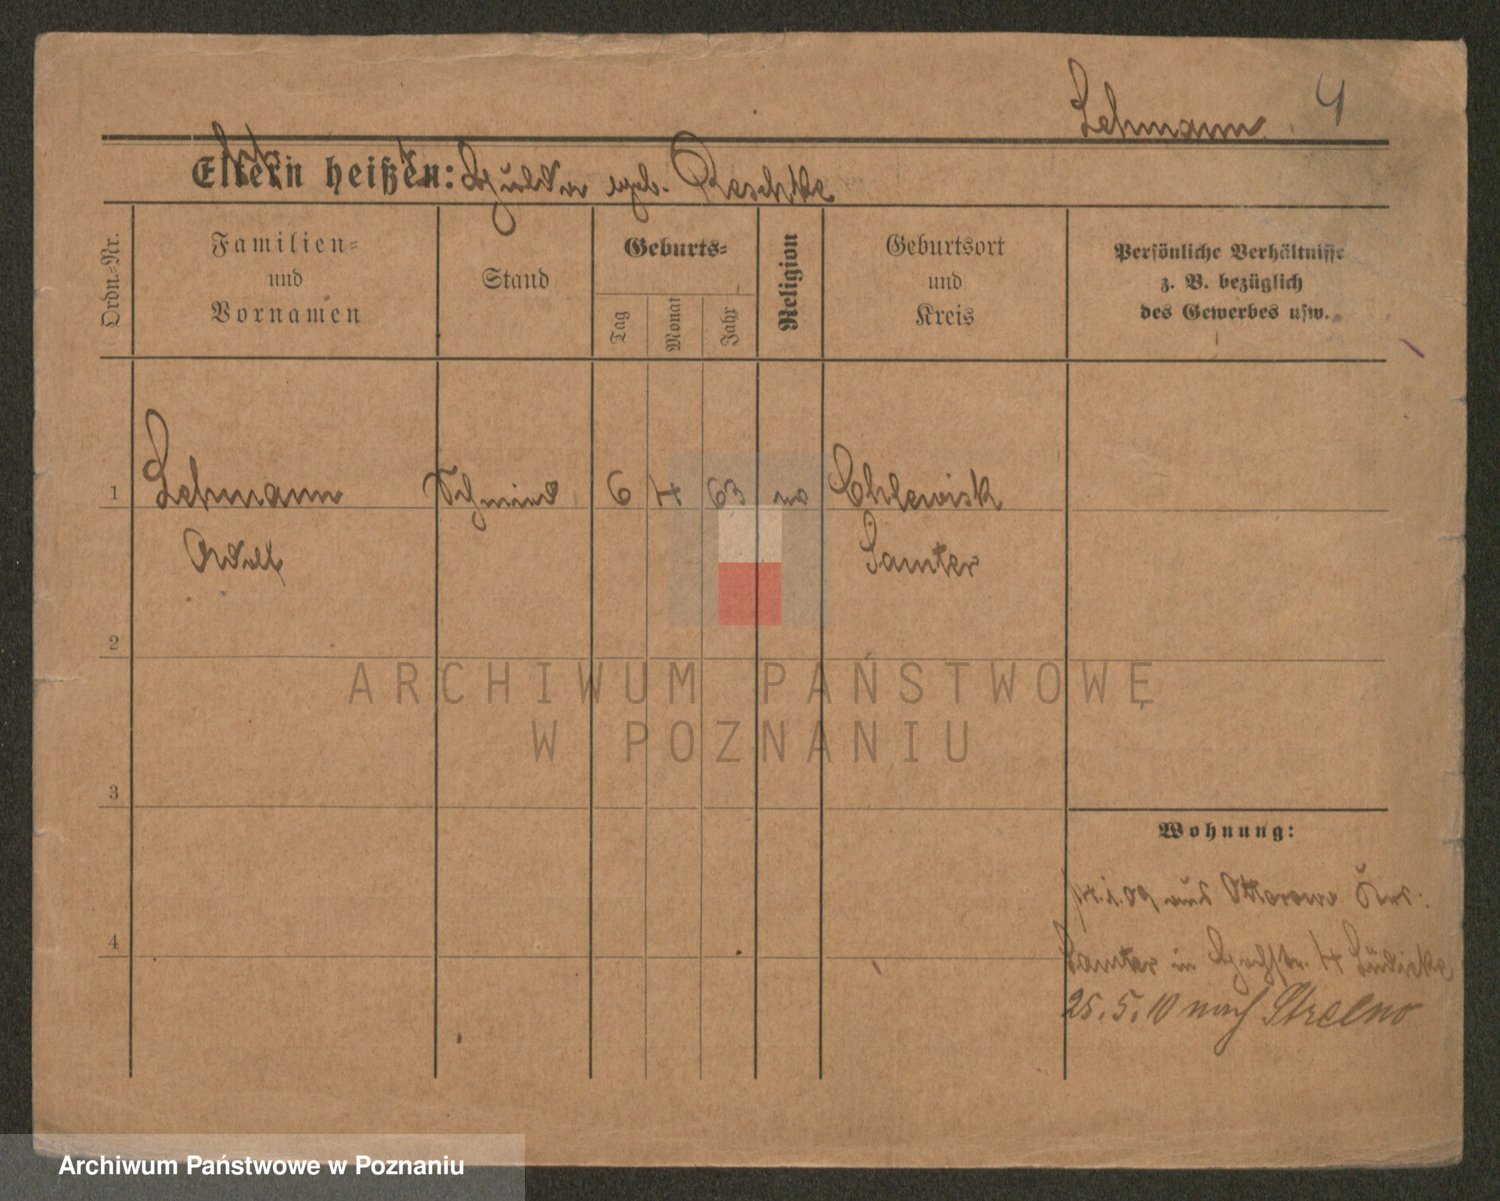 Lehmann 4
Eltern heißen: Hulda geb. Raschke
Ordn.-Nr.
Familien-
und
Vornamen
Stand
Geburts-
Tag
Monat
Jahr
Religion
Geburtsort
und
Kreis
Persönliche Verhältnisse
z. B. bezüglich
des Gewerbes usw.
1 Lehmann Schmied 6 4 63 Chlewisk
Adolf Samter
2
ARCHIWUM PAŃSTWOWE
W POZNANIU
3
Wohnung:
14.1.09 aus Ottorowo Krs.
4
Samter in 4 Lüdicke
25.5.10 nach Strelno
Archiwum Państwowe w Poznaniu